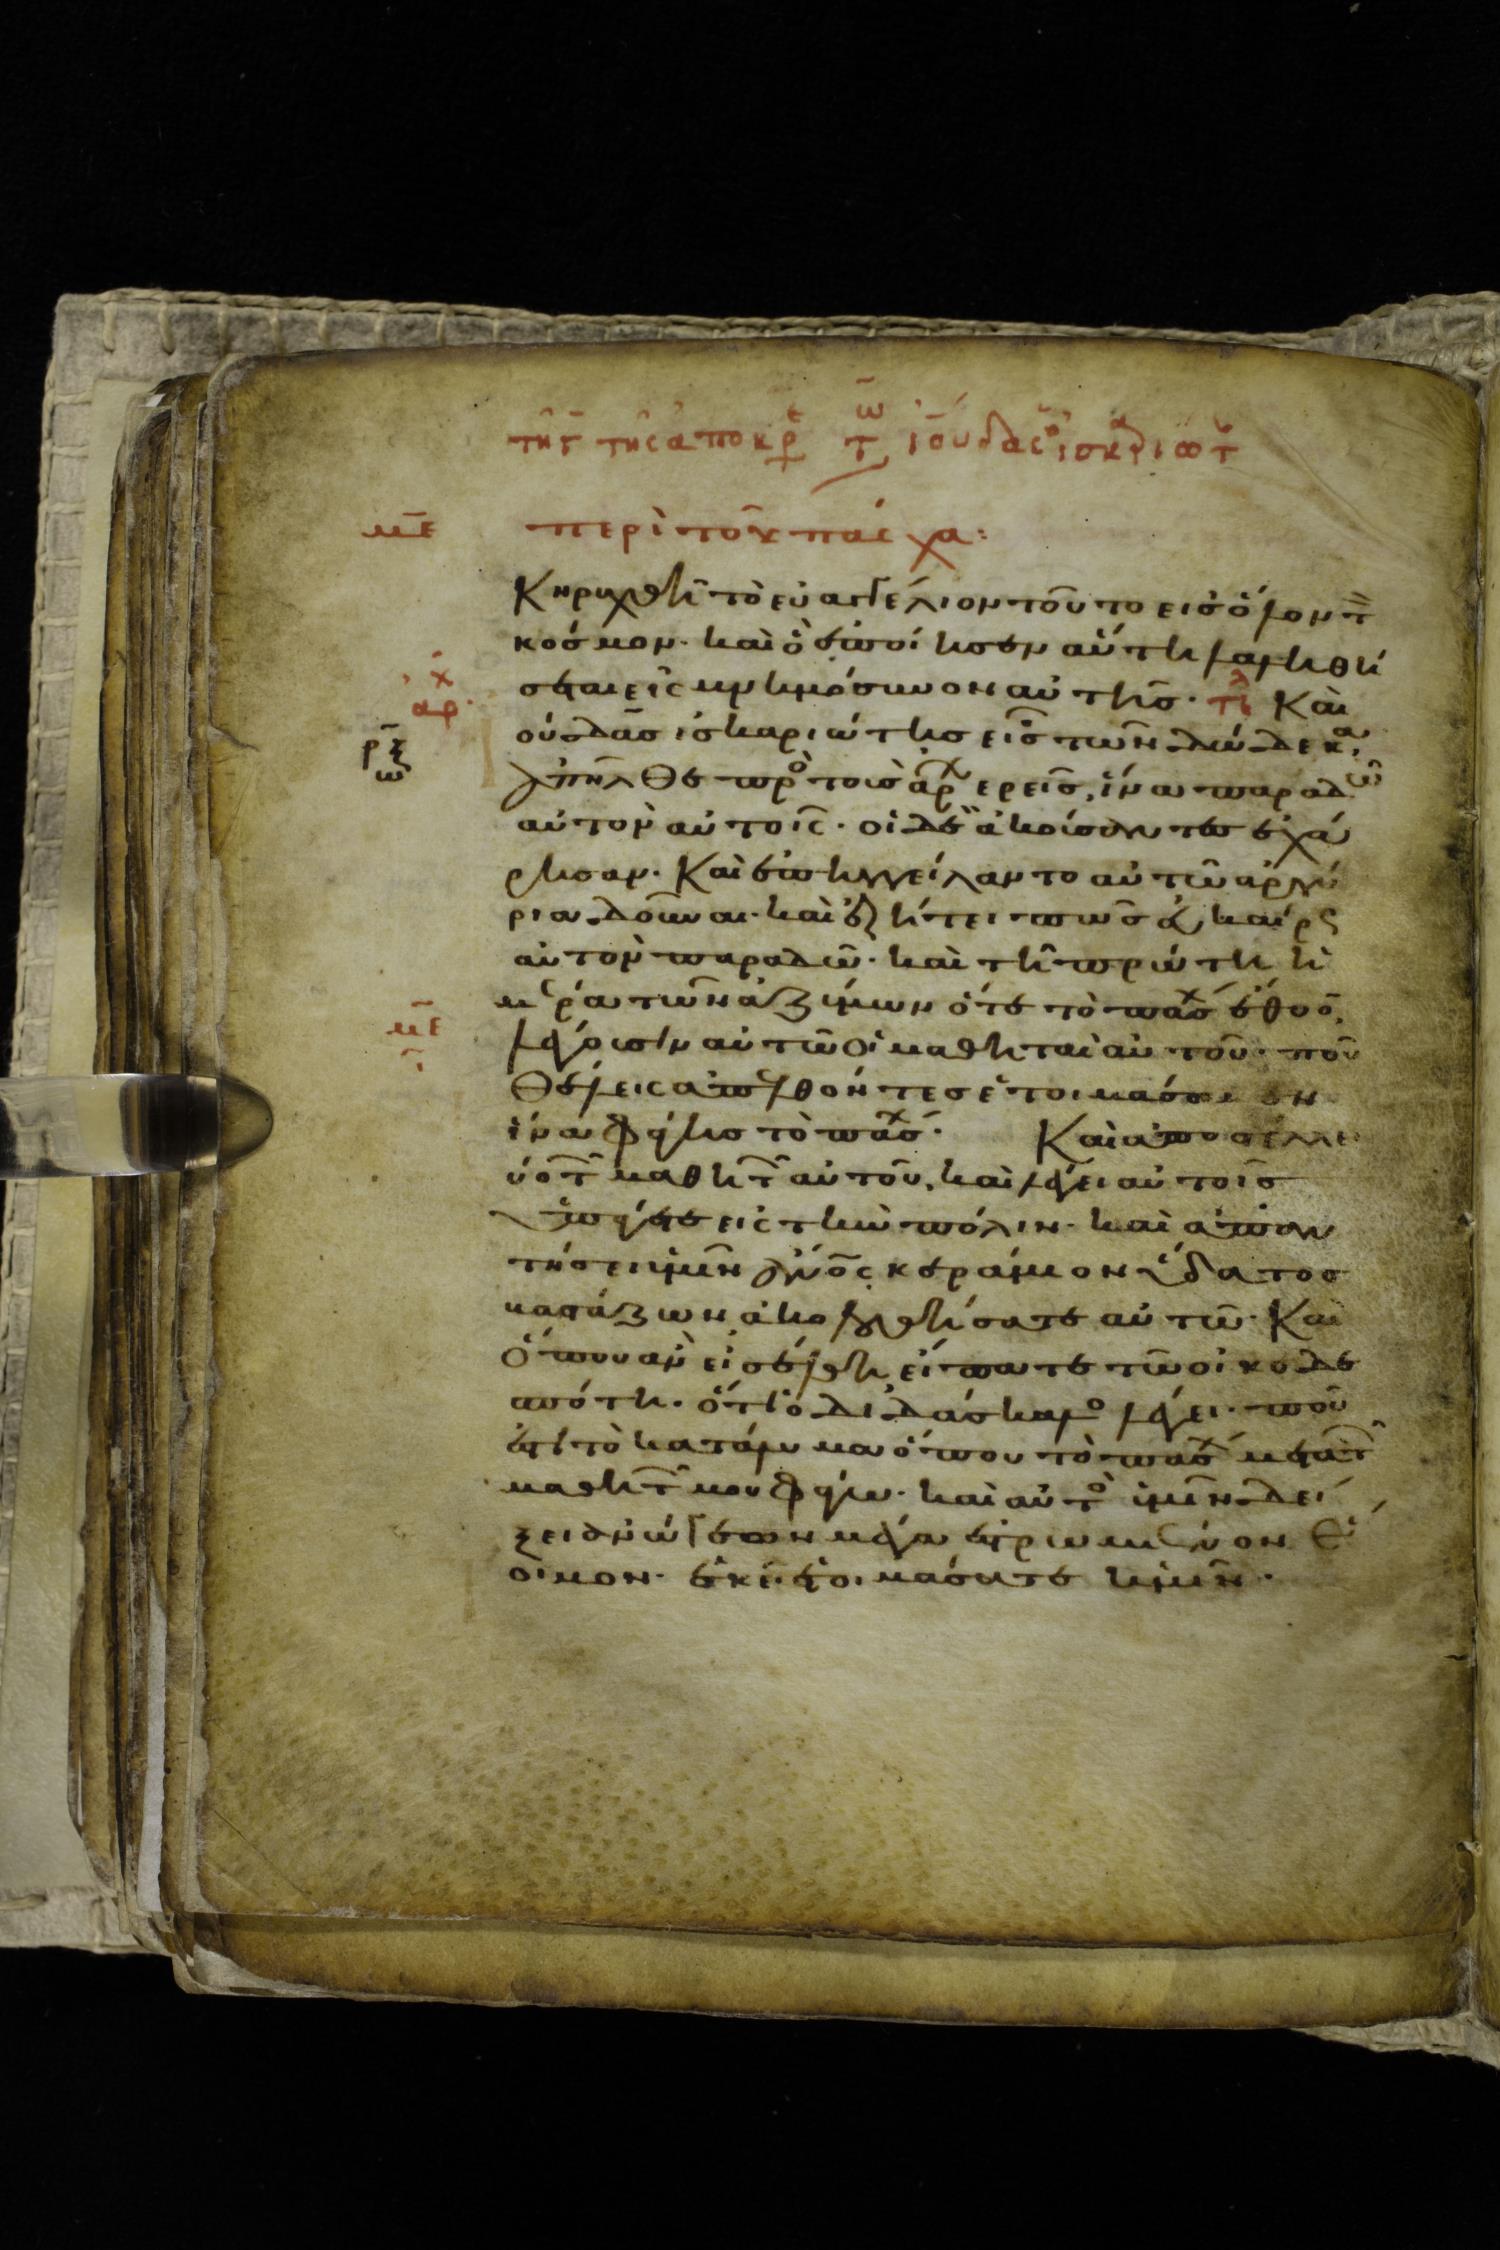 τῆ γ̄ τῆς ἀποκρ τῶ ϊουδας ὁ ϊσκαριωτ
με περὶ τοῦ πάσχα:
κηρυχθῆ τὸ εὐαγγέλιον τοῦτο εἰς ὅλον τ
κόσμον· καὶ ὃ ἐποίησεν αὕτη λαληθή
σεται εἰς μνημόσυνον αὐτῆς· τλ Καὶ
αρχ
ϊούδας ἰσκαριώτης εἷς τῶν δώδεκα,
ρξ
ἀπῆλθε πρὸ τοὺς ἀρχερεῖς, ἵνα παραδῶ
αὐτὸν αὐτοῖς· οἱ δὲ ἀκούσαντες ἐχά
ρησαν· Καὶ ἐπηγγείλαντο αὐτῶ ἀργύ
ρια δοῦναι· καὶ ἐζήτει πῶς εὐκαίρς
αὐτὸν παραδῶ· καὶ τῆ πρώτη ἡ
μέρα τῶν ἀζύμων ὅτε τὸ πάσχ ἔθυο,
με
λέγουσιν αὐτῶ οἱ μαθηταὶ αὐτοῦ· ποῦ
θέλεις ἀπελθόντες ἑτοιμάσωμεν
ἵνα φάγης τὸ πάσχ· Καὶ ἀποστέλλει
δύο τ μαθητ αὐτοῦ, καὶ λέγει αὐτοῖς
ὑπάγετε εἰς τὴν πόλιν· καὶ ἀπαν
τήσει ὑμῖν ἄνος κεράμιον ὕδατος
βαστάζων, ἀκολουθήσατε αὐτῶ· Καὶ
ὅπου ἂν εἰσέλθη, εἴπατε τῶ οἰκοδε
σπότη· ὅτι ὁ διδάσκαλο λέγει· ποῦ
ἐστὶ τὸ κατάλυμα ὅπου τὸ πάσχ μετὰ τ
μαθητ μου φάγω· καὶ αὐτὸ ὑμῖν δεί
ξει ἀνώγεων μέγα ἐστρωμένον ἕ
οιμον· ἐκεῖ ἑτοιμάσατε ἡμῖν·